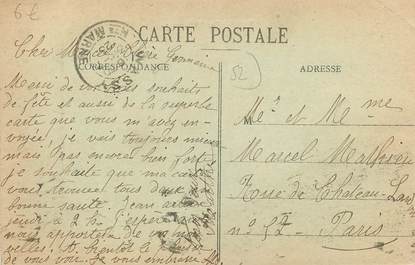 6€
CARTE POSTALE
CORRESPONDANCE
ADRESSE
52
HTE MARNE
Cher Marcel Germaine
Merci de vos souhaits
de fête et aussi de la superbe
carte que vous m'avez en-
voyée, je vais toujours mieux
mais pas encore bien forte
je souhaite que ma carte
vous trouve tous deux en
bonne santé. Jean arrive
jeudi à 2 h. j'espère
nous apportera de vos nou-
velles. à bientôt le plaisir
de vous voir. Je vous embrasse
Mr et Mme
Marcel
Rue de Chateau-Lan
n° 52 - Paris